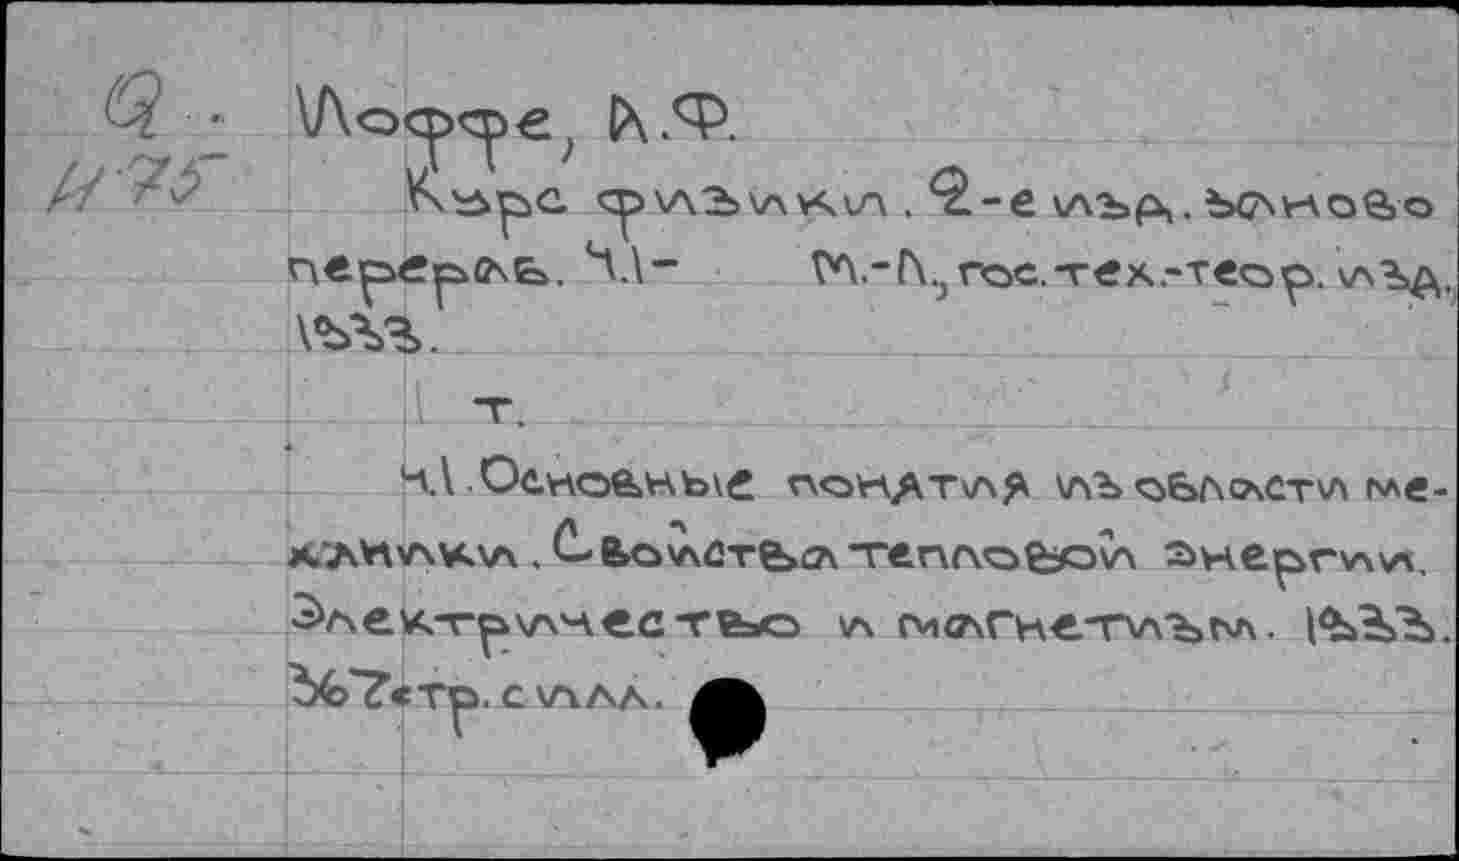 Q.
И75
Иоффе, А.Ф.
Курс физики. 2-е изд. заново
перераб. Ч.1-   М.-Л., гос. тех.-теор. изд.,
1933.
т.
ч.1. Основные понятия из области ме-
ханики. Свойства тепловой энергии.
Электричество и магнетизм. 1933.
367 стр. с илл.